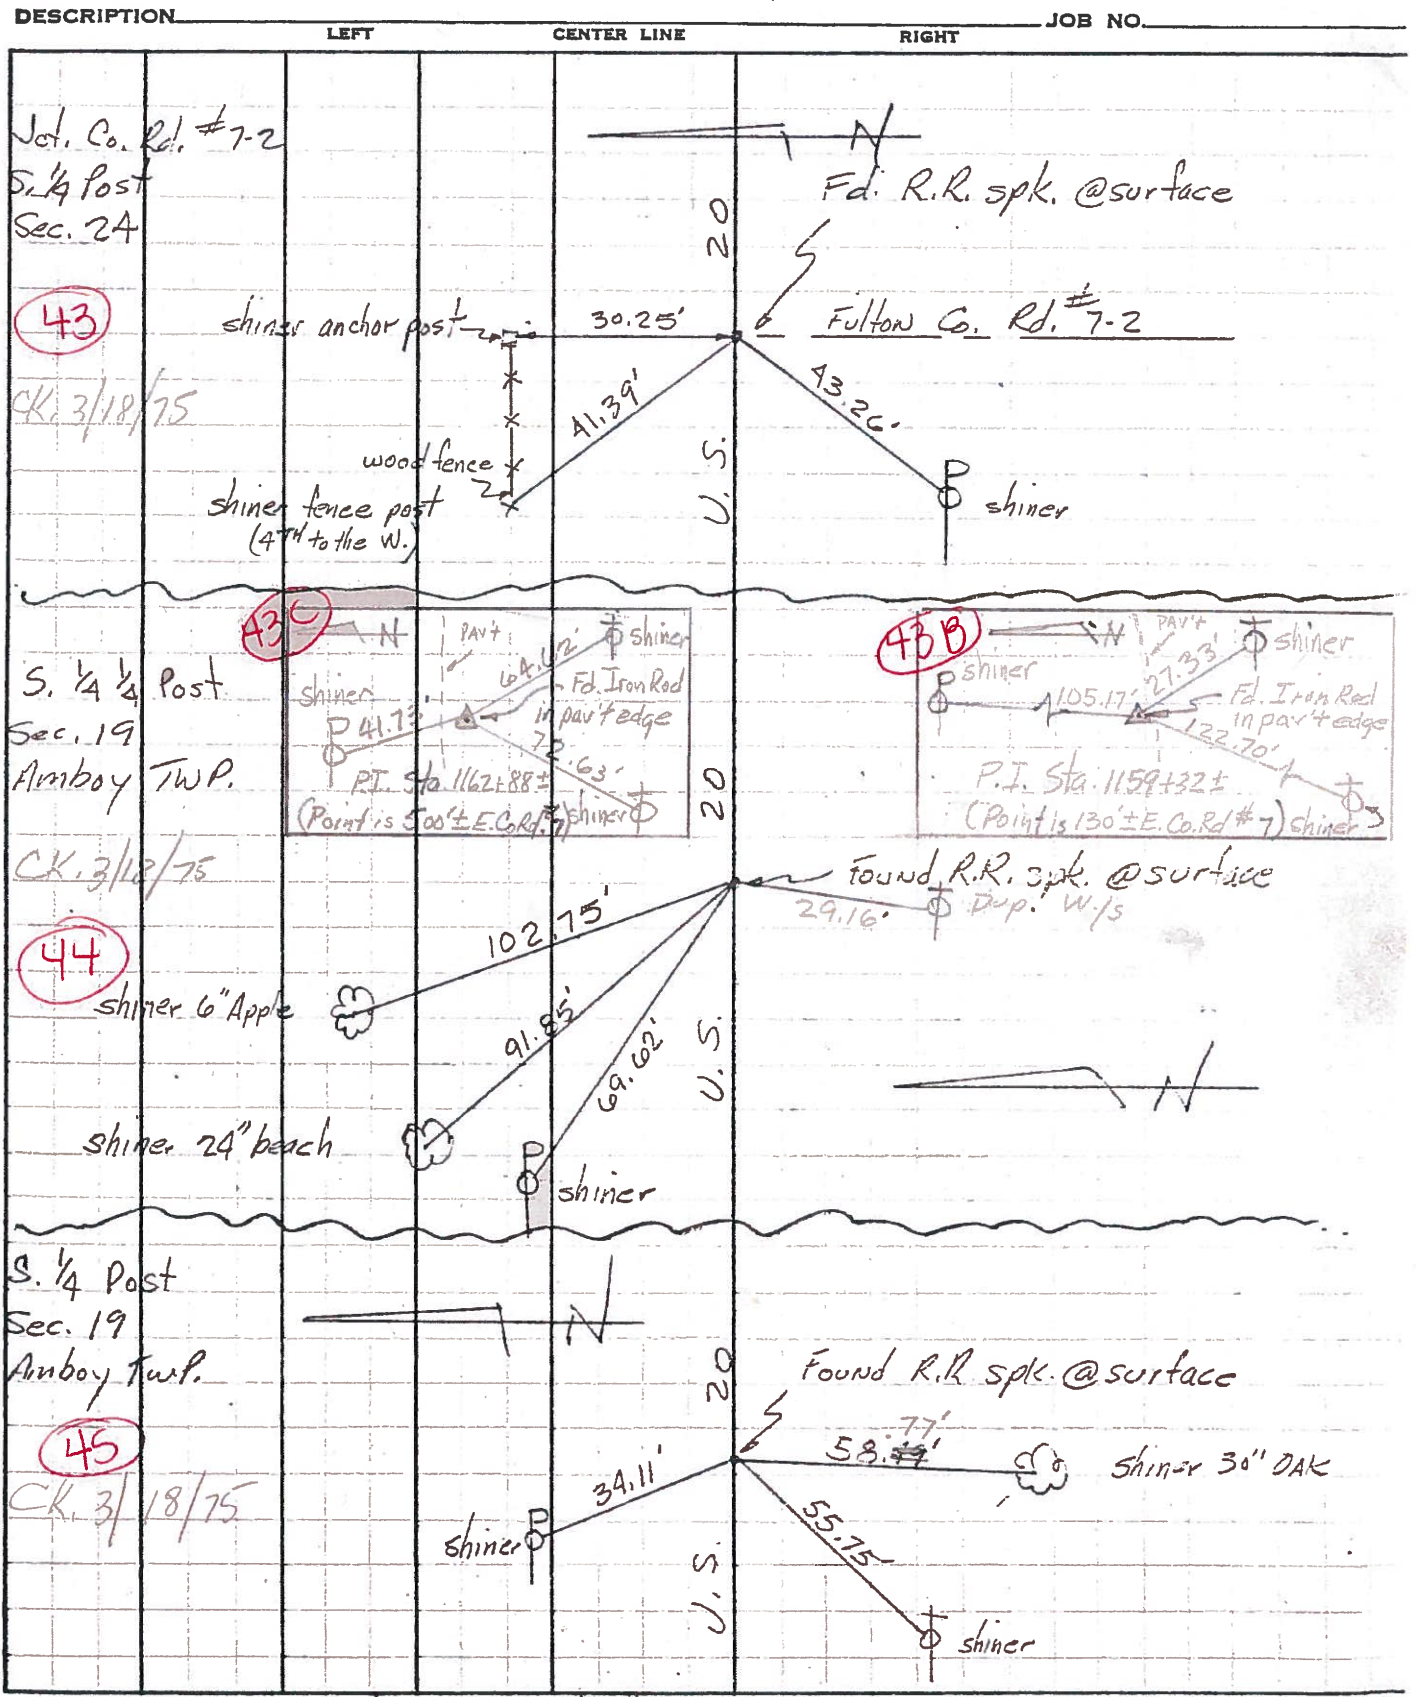 DESCRIPTION
JOB NO.
LEFT
CENTER LINE
RIGHT
Jct. Co. Rd. #7-2
S. 1/4 Post
Sec. 24
43
CK. 3/18/75
N
Fd. R.R. spk. @surface
U.S. 20
shiner anchor post
30.25'
Fulton Co. Rd. #7-2
41.39'
43.26'
wood fence
shiner fence post
(4TH to the W.)
P
shiner
43C
N
PAV't
64.62'
shiner
shiner
P
41.73'
Fd. Iron Rod
in pav't edge
72.63'
P.I. Sta. 1162+88±
(Point is 500'± E. Co Rd. #7)
shiner
43B
N
PAV't
27.33'
shiner
shiner
P
105.17'
Fd. Iron Rod
in pav't edge
122.70'
P.I. Sta. 1159+32±
(Point is 130'± E. Co. Rd #7) shiner
S. 1/4 1/4 Post
Sec. 19
Amboy TWP.
CK. 3/18/75
44
U.S. 20
Found R.R. spk. @surface
29.16'
Dup. W/s
102.75'
shiner 6" Apple
91.85'
69.62'
shiner 24" beach
P
shiner
N
S. 1/4 Post
Sec. 19
Amboy Twp.
45
CK. 3/18/75
N
U.S. 20
Found R.R spk. @surface
.77'
58.
shiner 30" OAK
34.11'
P
shiner
55.75'
shiner